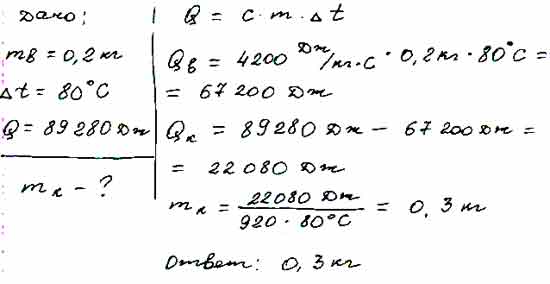 Дано:
mв = 0,2 кг
Δt = 80°C
Q = 89280 Дж
mк - ?
Q = c · m · Δt
Qв = 4200 Дж/кг·C · 0,2 кг · 80°C =
= 67 200 Дж
Qк = 89280 Дж - 67 200 Дж =
= 22 080 Дж
mк = 22080 Дж / 920 · 80°C = 0,3 кг
Ответ: 0,3 кг